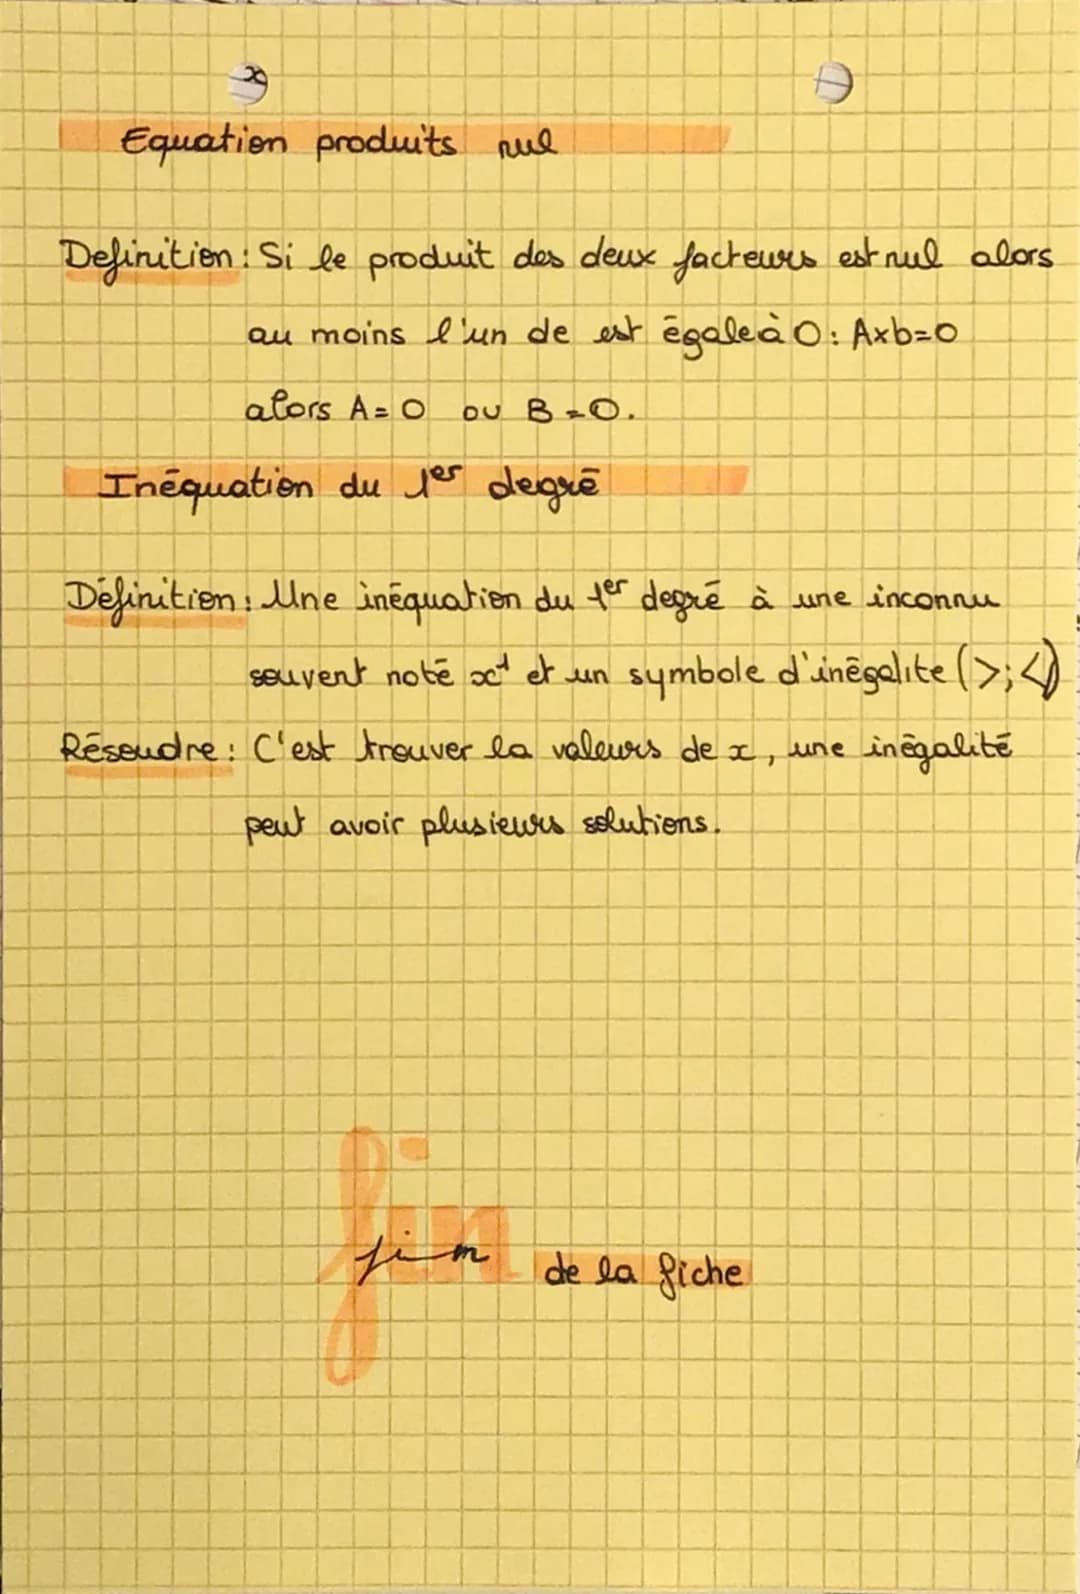 x
Equation produits nul
Definition : Si le produit des deux facteurs est nul alors
au moins l'un de est égale à 0 : Axb=0
alors A=0 ou B=0.
Inéquation du 1er degré
Définition : Une inéquation du 1er degré à une inconnu
souvent noté x¹ et un symbole d'inégalite (>;<)
Résoudre : C'est trouver la valeurs de x, une inégalité
peut avoir plusieurs solutions.
fin
fin de la fiche